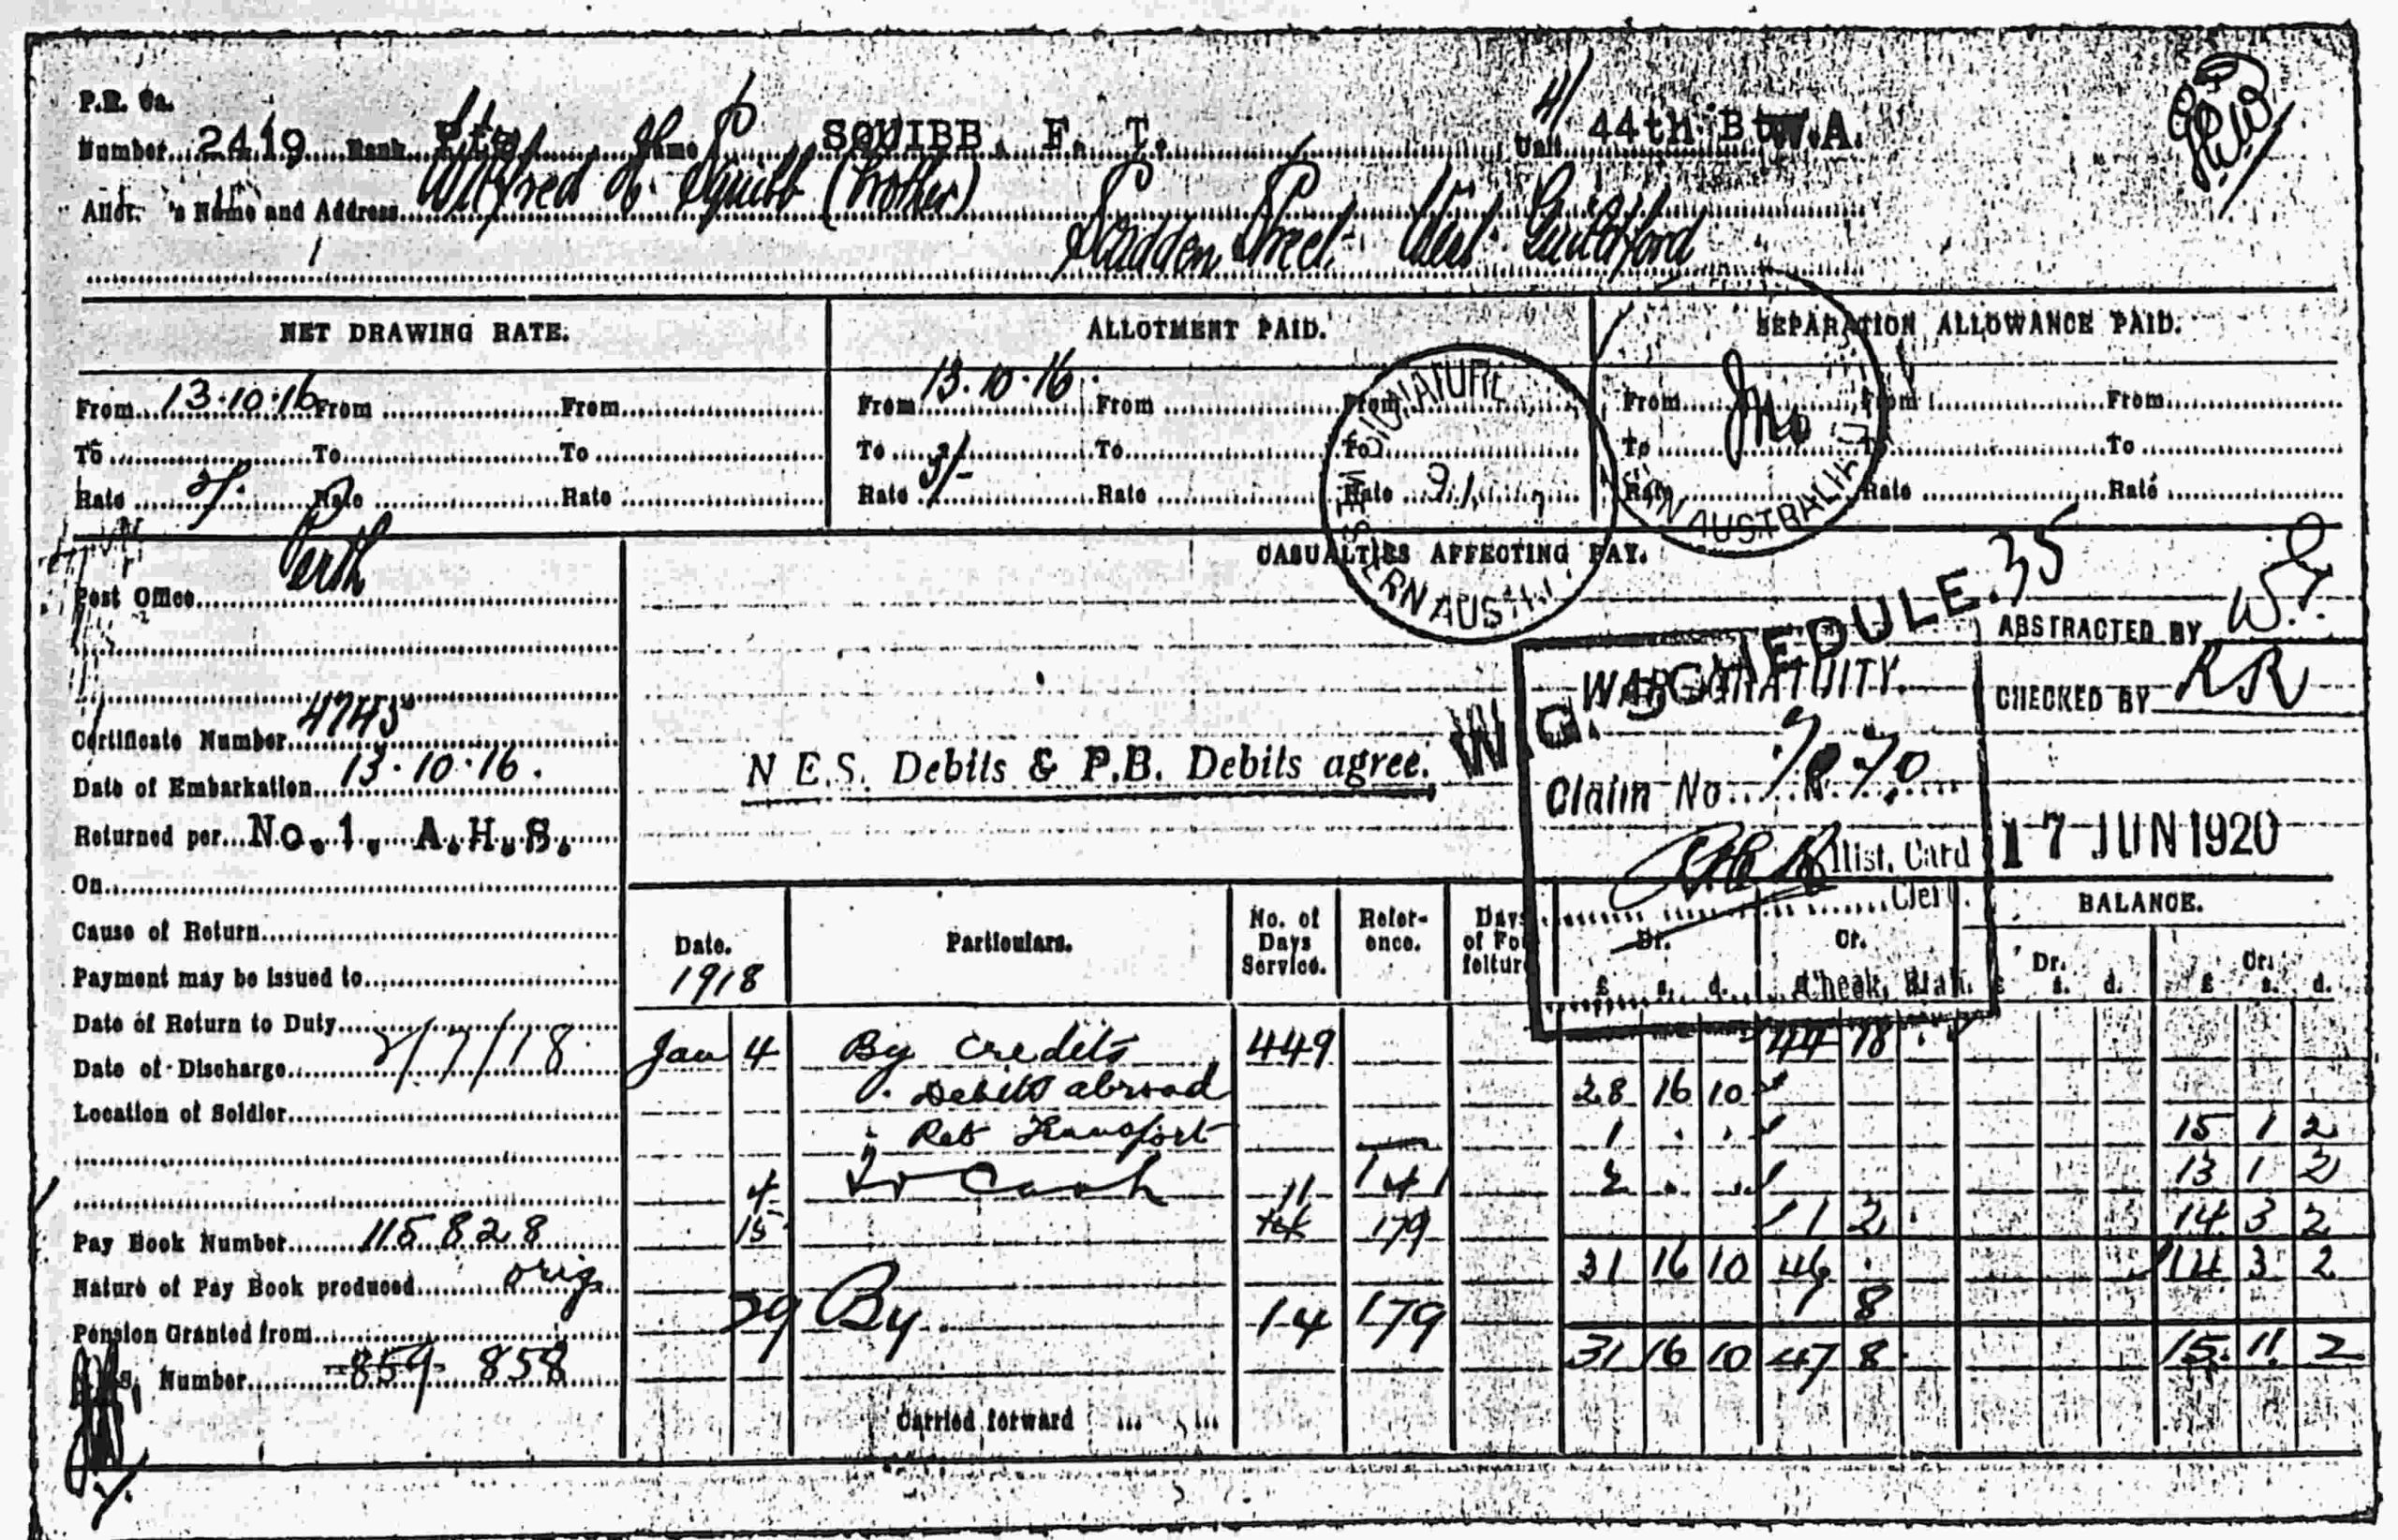 P.R. Ca.
Number 2419 Rank Pte Name SQUIBB, F. T. Unit 4/ 44th Bt W.A.
Allot. 's Name and Address Wilfred H. Squibb (brother)
Scadden Street West Guildford
NET DRAWING RATE. ALLOTMENT PAID. SEPARATION ALLOWANCE PAID.
From 13.10.16 From From From 13.10.16 From From From From From
To To To To To To To To To
Rate 2/- Rate Rate Rate 3/- Rate Rate Rate Rate Rate
SIGNATURE
WESTERN AUST
ERN AUSTRALIA
CASUALTIES AFFECTING PAY.
Post Office Perth
W.G. SCHEDULE. 35
ABSTRACTED BY
WAR GRATUITY.
CHECKED BY RR
Certificate Number 4745
Date of Embarkation 13.10.16.
N E.S. Debits & P.B. Debits agree.
Claim No 7870
Returned per No. 1. A.H.S.
Hist. Card
Clerk.
17 JUN 1920
On
Cause of Return
Payment may be issued to
Date of Return to Duty
Date of Discharge 2/7/18
Location of Soldier
Pay Book Number 115828
Nature of Pay Book produced orig
Pension Granted from
S. Number 859 858
Date. Particulars. No. of Days Service. Reference. Days of Forfeiture Dr. Cr. BALANCE.
1918 £ s. d. Check, Dr. £ s. d. Cr. £ s. d.
Jan 4 By Credits 449 44 18 .
Debits abroad 28 16 10
Ret Transport 1 . . 15 1 2
4 To Cash 141 2 . . 13 1 2
15 11 179 1 2 . 14 3 2
31 16 10 46 . 14 3 2
29 By 14 179 1 8
31 16 10 47 8 . 15 11 2
Carried forward ... ...